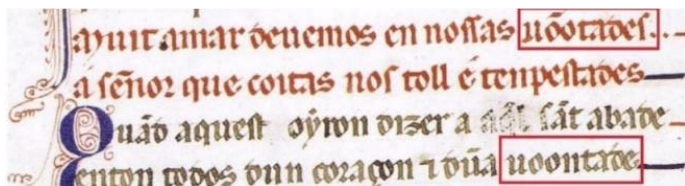 ayuit amar deuemos en nossas uõotades..
a señor que coitas nos toll e tenpestades
Quãd aquest oyron dizer a sãt abade
enton todos dun coraçon ⁊ dũa uoontade